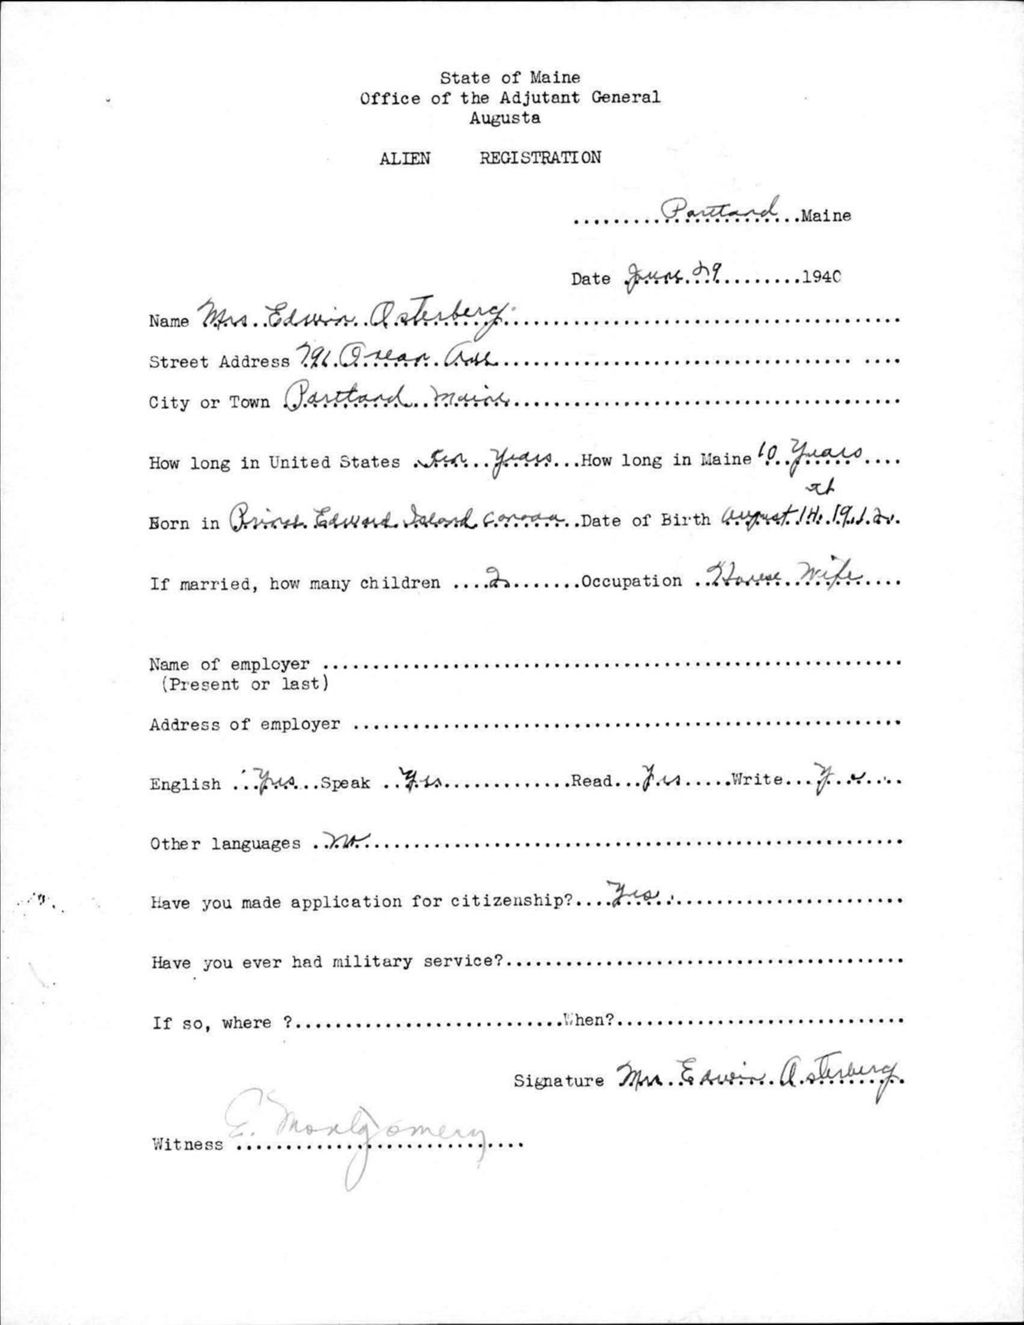 State of Maine
Office of the Adjutant General
Augusta
ALIEN REGISTRATION
Portland Maine
Date June 29 1940
Name Mrs. Edwin Osterberg
Street Address 791 Ocean Ave
City or Town Portland Maine
How long in United States ten Years How long in Maine 10 Years
Born in Prince Edward Island Canada Date of Birth August 14th 1912
If married, how many children 2 Occupation House Wife
Name of employer
(Present or last)
Address of employer
English Yes Speak Yes Read Yes Write Yes
Other languages No
Have you made application for citizenship? Yes
Have you ever had military service?
If so, where ? When?
Signature Mrs. Edwin Osterberg
Witness E. Montgomery